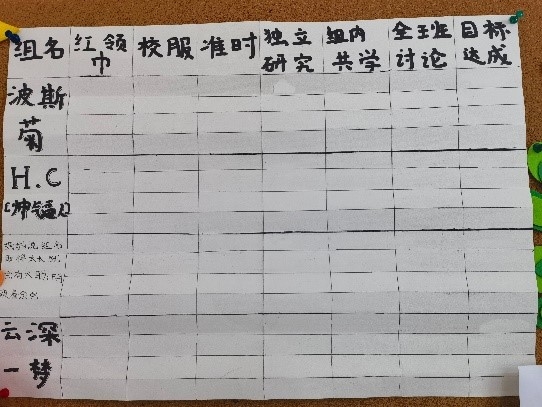 组名 红领巾 校服 准时 独立研究 组内共学 全班讨论 目标达成
波斯菊
H.C
云深一梦